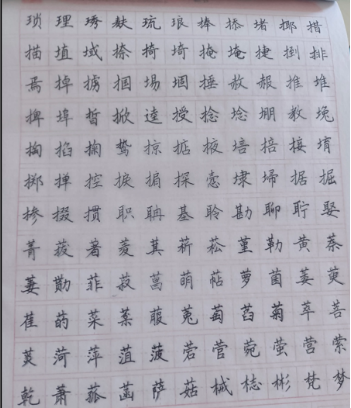 琐 理 琇 麸 琉 琅 捧 掭 堵 揶 措
描 埴 域 捺 掎 埼 掩 埯 捷 捯 排
焉 掉 掳 掴 埸 堌 捶 赦 赧 推 堆
捭 埠 晢 掀 逵 授 捻 埝 堋 教 堍
掏 掐 掬 鸷 掠 掂 掖 培 掊 接 堉
掷 掸 控 捩 掮 探 悫 埭 埽 据 掘
掺 掇 掼 职 聃 基 聆 勘 聊 聍 娶
菁 菝 著 菱 萁 菥 菘 堇 勒 黄 萘
萋 勚 菲 菽 菖 萌 萜 萝 菌 萎 萸
萑 菂 菜 棻 菔 菟 萄 萏 菊 萃 菩
菼 菏 萍 菹 菠 菪 菅 菀 萤 营 萦
乾 萧 菰 菡 萨 菇 械 梽 彬 梵 梦